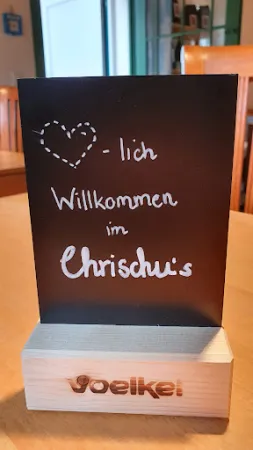 -lich
Willkommen
im
Chrischu's
voelkel